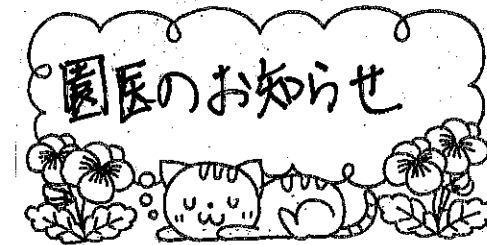 園医のお知らせ